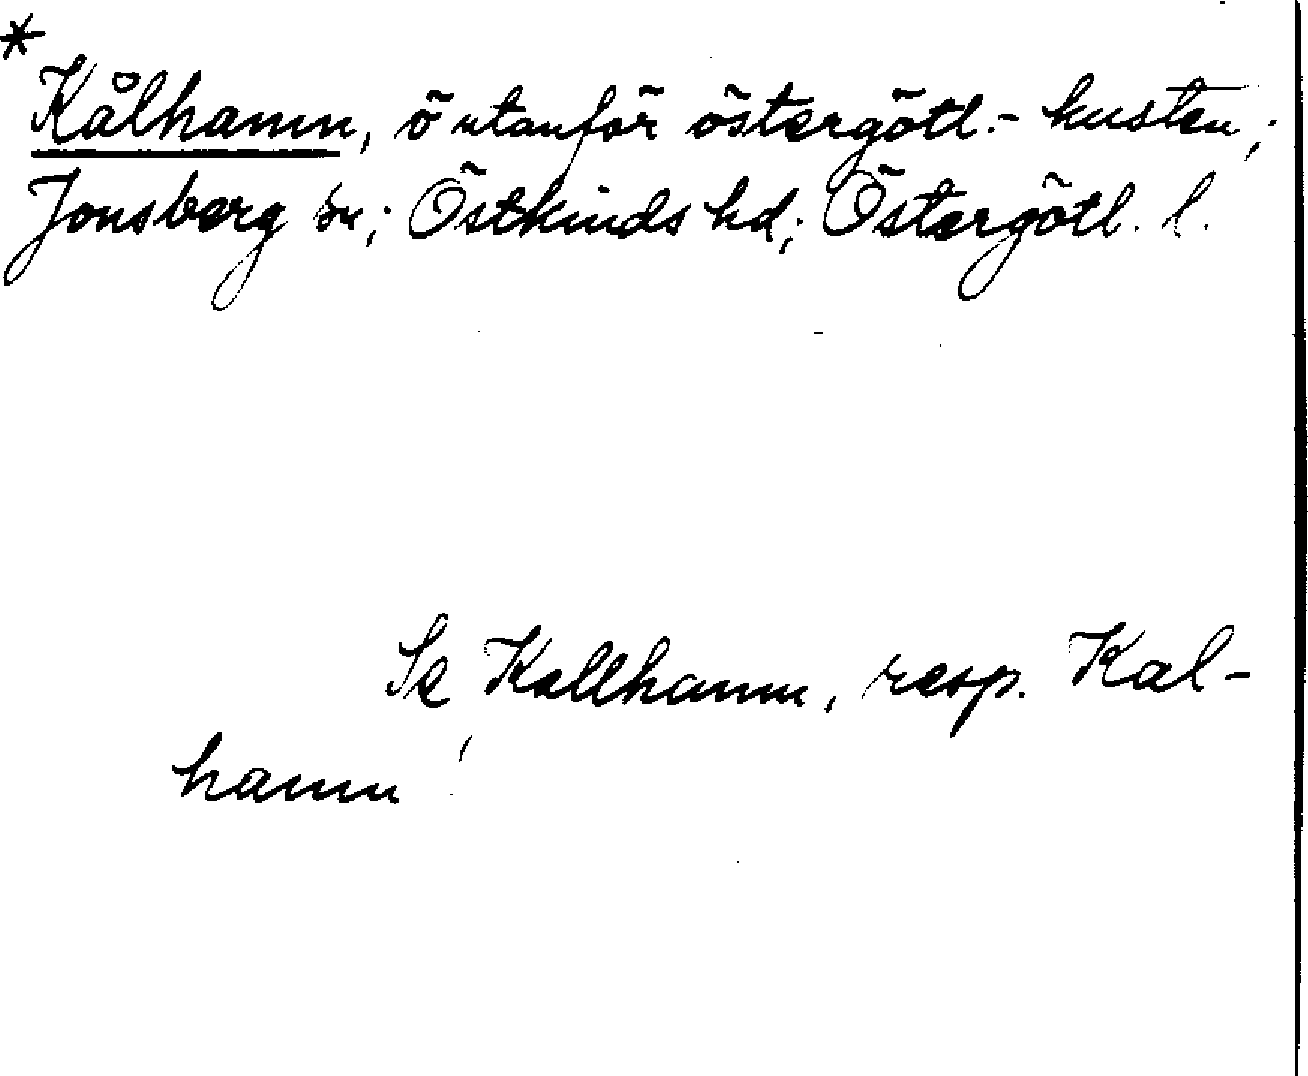 *
Kålhamn, ö utanför östergötl.-kusten;
Jonsberg sn; Östkinds hd; Östergötl. l.
Se Kallhamn, resp. Kal-
hamn!